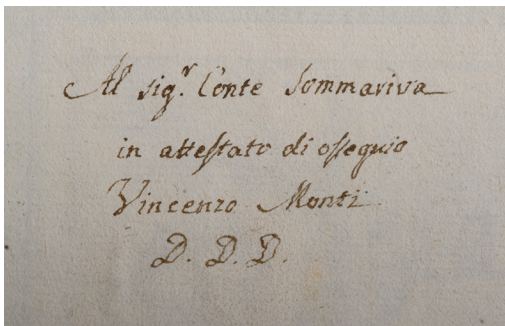 Al sig.r Conte Sommariva
in attestato di ossequio
Vincenzo Monti
D. D. D.